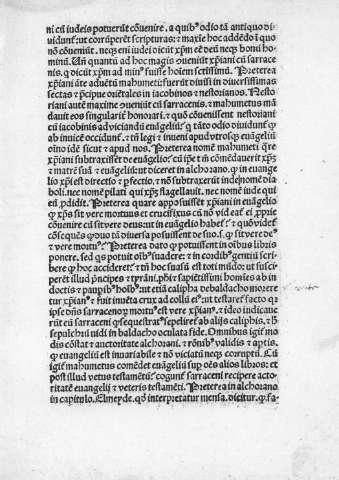 ni cū iudeis potuerūt cōuenire. a quibꝰ odio tā antiquo di
uidunť: ut corrūperēt scripturas: ⁊ maxie hoc addēdo ī quo
nō cōueniūt. neqꝫ eni iudei dicūt xp̄m eē deū neqꝫ bonū ho
minū. Un quantū ad hoc magis ꝯueniūt xp̄iani cū sarrace
nis. q̇ dicūt xp̄m ad minꝰ fuisse hoiem sctissimū. Preterea
xp̄iani āte aduētū mahumeti: fuerūt diuisi in diuersissimas
sectas ⁊ p̄cipue oriētales in iacobinos ⁊ nestorianos. Nesto
riani autē maxime ꝯueniūt cū sarracenis. ⁊ mahumetus mā
dauit eos singularit̄ honorari. ⁊ quō cōuenissent nestoriani
cū iacobinis adviciandū euāgeliū: qͥ tāto odio diuidunť ꝙ
ab inuicē occidunť. ⁊ tn̄ legi ⁊ inueni apud vtrosqꝫ euāgeli
oīno idē sicut ⁊ apud nos. Preterea nomē mahumeti q̄re
xp̄iani subtraxissēt de euāgelio: cū ip̄e tm̄ cōmēdauerit xp̄m
⁊ matrē suā ⁊ euāgeliū: ut dicetʳ in alchorano. ꝙ in euange
lio xp̄i est directio ⁊ ꝑfectio. ⁊ nō subtraxerūt inde nomē dia
boli. nec nomē pilati qui xp̄m flagellauit. nec nomē iude qui
eū ꝓdidit. Preterea quare apposuissēt xp̄iani in euāgelio
ꝙ xp̄s sit vere mortuus et crucifixus cū nō videatʳ ei ꝓprie
cōuenire cū sit vere deus: ut in euāgelio habetʳ: ⁊ quō vidētʳ
cōseq̄ēs ꝙ duo tā diuersa posuissent de suo. s. ꝙ sit vere deꝰ
⁊ vere mortuꝰ. Preterea dato ꝙ potuissent in oībus libris
ponere. sed qs potuit oībꝰ suadere: ⁊ in cordibꝰ gentiū scri
bere ꝙ hoc accideret: ⁊ tn̄ hoc suasū est toti mūdo: ut susci
perēt illud p̄ncipes ⁊ tyrāni. ph̄i ⁊ sapiētissimi homīes ab in
doctis ⁊ pauꝑibꝰ hoībꝰ: ut etiā calipha de baldacho morere
tur xp̄ianꝰ ⁊ fuit inuēta crux ad collū eiꝰ: ut testaretʳ facto q
ipse om̄s sarracenoꝝ mortuꝰ est vere xp̄ianꝰ. ⁊ ideo indicaue
rūt eū sarraceni q̄si exequiēꝰ: ut sepeliretʳ ab aliis caliphis. ⁊ h̄
sepulchrū uidi in baldacho oculata fide. Omnibus igitʳ mo
dis cōstat ⁊ auctoritate alchorani. ⁊ rōnibꝰ validis ⁊ aptis.
ꝙ euangeliū est inuariabile ⁊ nō viciatū neqꝫ corruptū. Cū
igitʳ mahumetus cōmēdet euāgeliū sup oēs alios libros: et
post illud vetus testamētū: cogunť sarraceni recipere aucto
ritatē euangelij ⁊ veteris testamēti. Preterea in alchorano
in capitulo. Elmeyde. qḋ interpretatur mensa. dicitur. ꝙ sa-